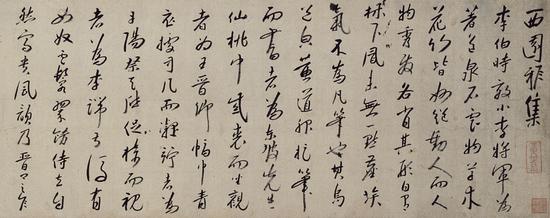 西園雅集
李伯時效小李將軍為
著色泉石雲物草木
花竹皆妙絕動人而人
物秀發各肖其形自有
林下風味無一點塵埃
氣不為凡筆也其烏
帽黃道服捉筆
而書者為東坡先生
仙桃巾紫裘而坐觀
者為王晉卿幅巾青
衣據方几而凝竚者為
丹陽蔡天啟捉椅而視
者為李端叔後有
女奴雲鬟翠飾侍立自
然富貴風韻乃晉